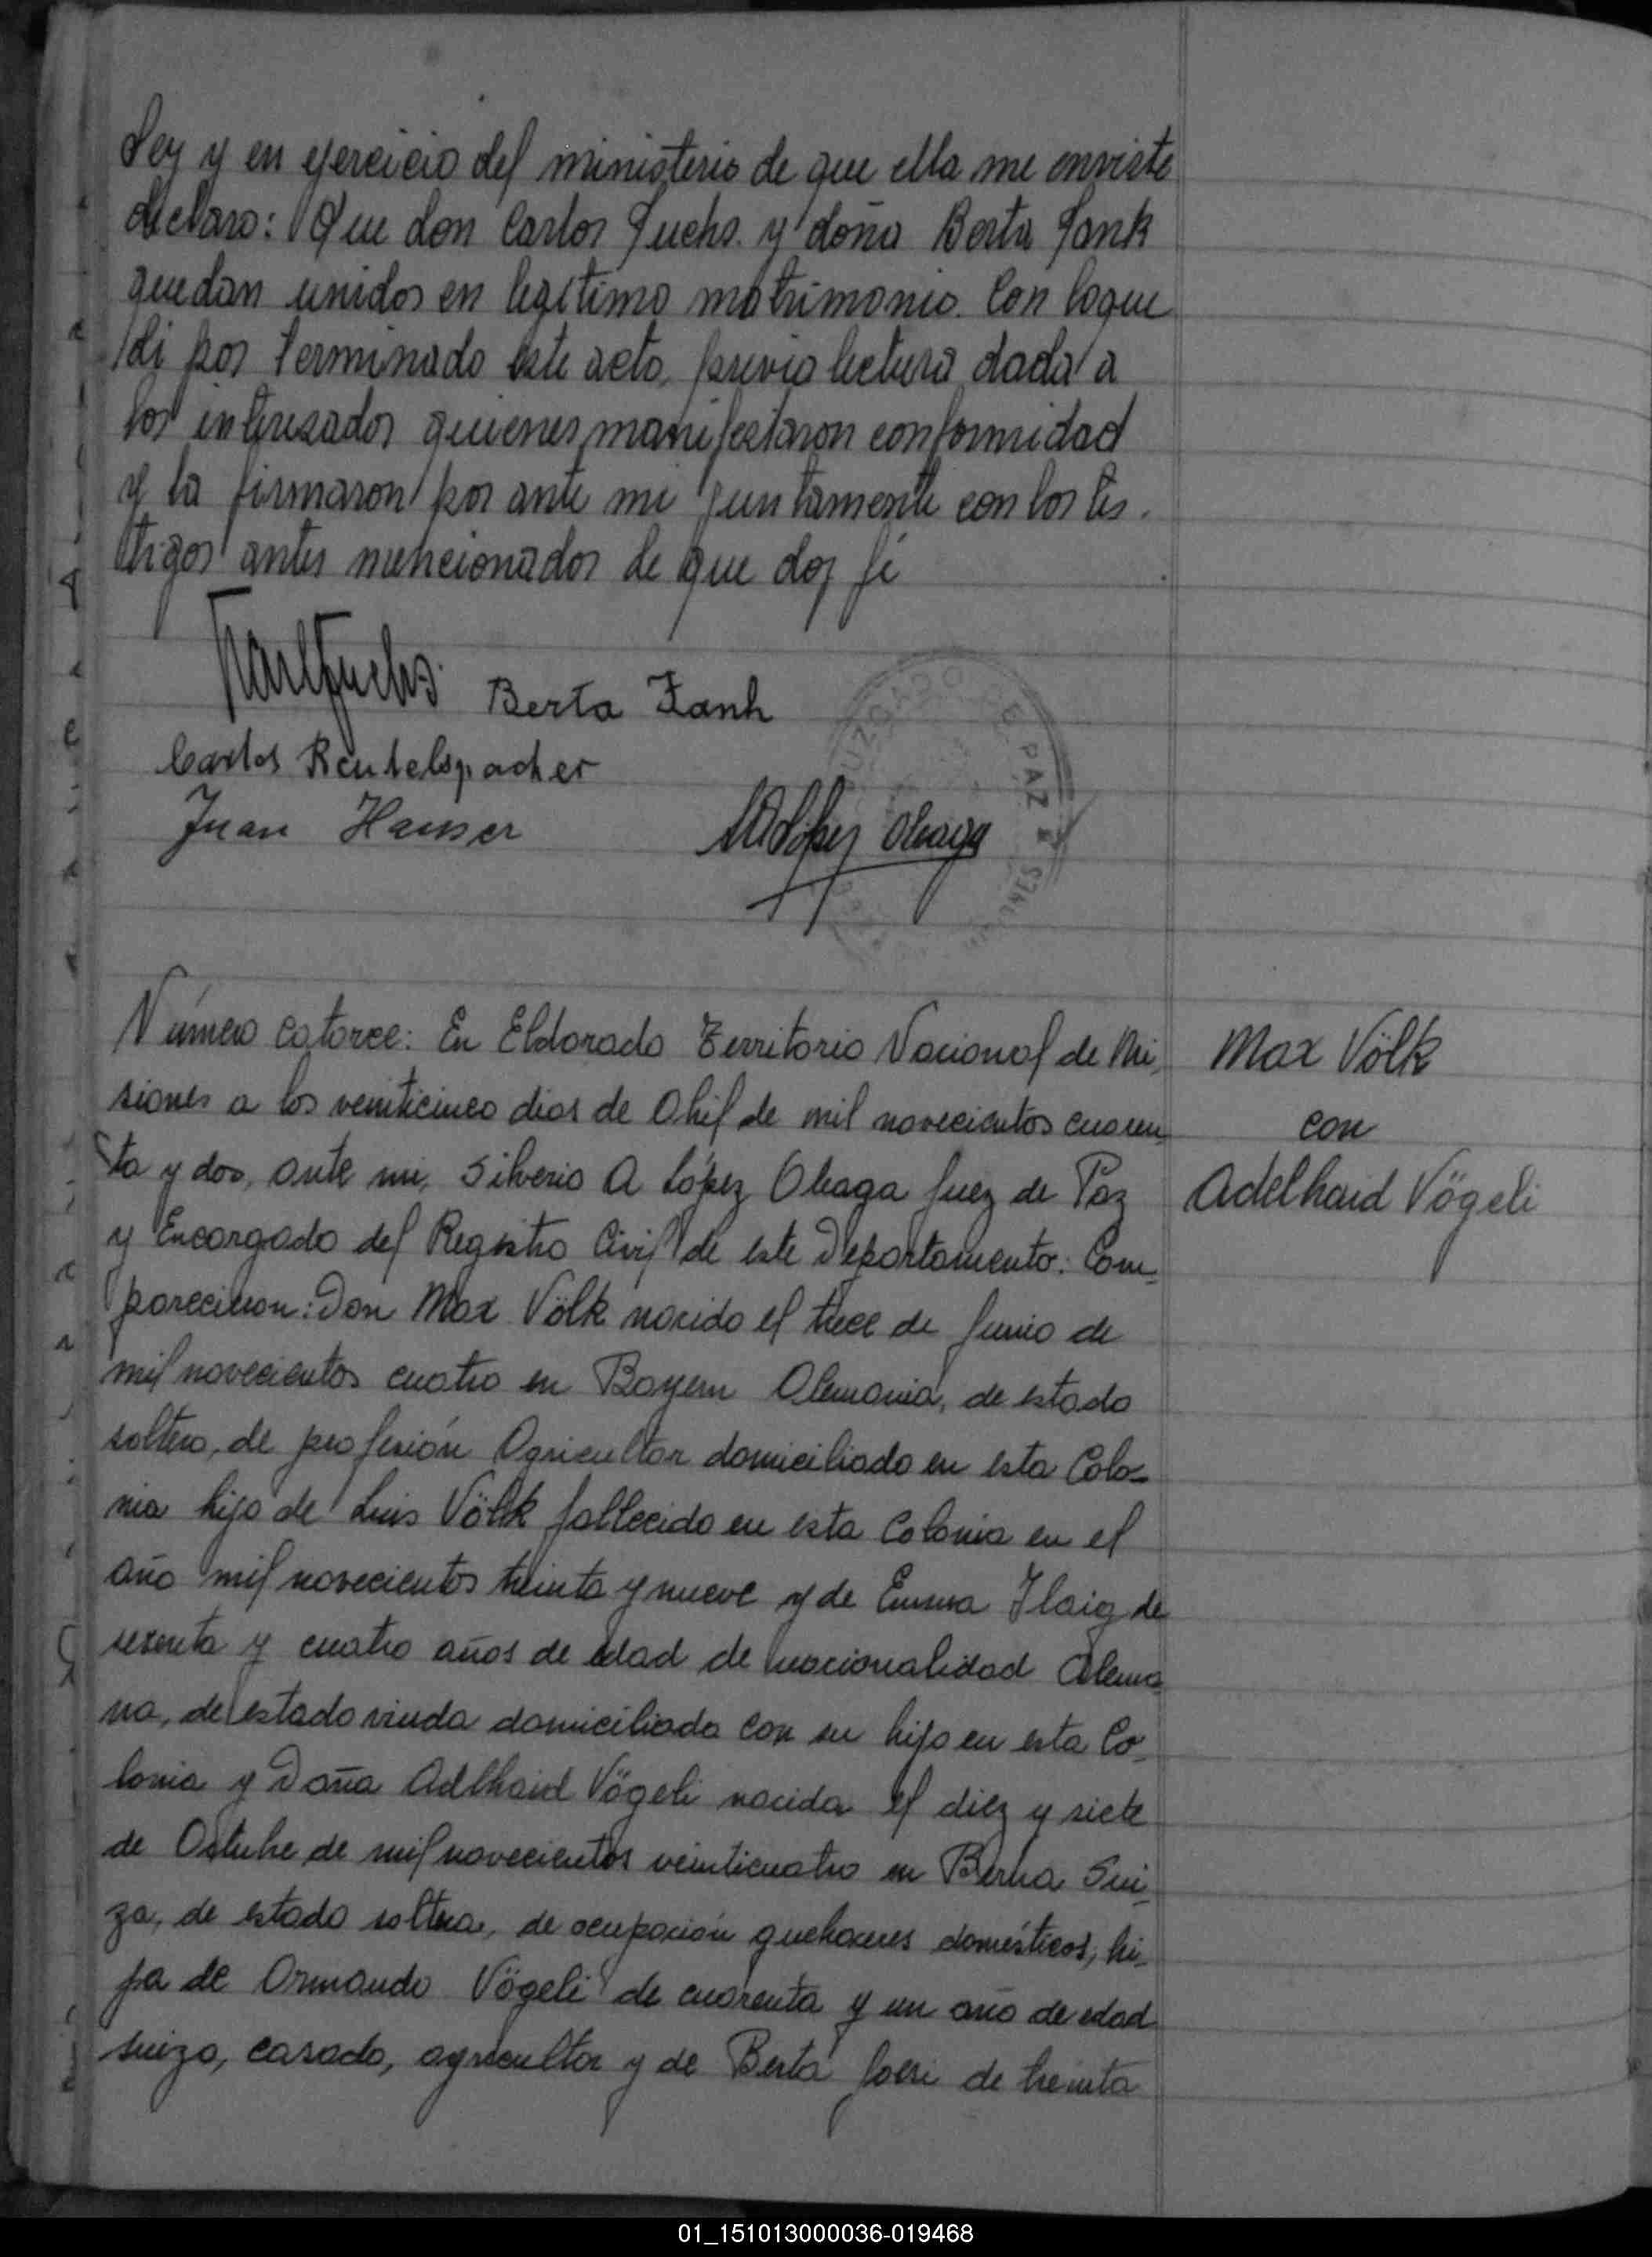 Ley y en ejercicio del ministerio de que ella me enviste
declaro: Que don Carlos Fuchs. y doña Berta Jank
quedan unidos en legítimo matrimonio. Con loque
di por terminado este acto, previa lectura dada a
los interesados quienes manifestaron conformidad
y la firmaron por ante mi juntamente con los tes.
tigos antes mencionados de que doy fé
Karl Fuchs.
Berta Jank
Carlos Reutelspacher
Juan Hauser
SALópez Oleaga
JUZGADO DE PAZ
MISIONES
Número catorce: En Eldorado Territorio Nacional de Mi-
siones a los veinticinco dias de Abril de mil novecientos cuaren-
ta y dos, ante mi, Silverio A López Oleaga Juez de Paz
y Encargado del Registro Civil de este Departamento: Com-
parecieron: Don Max Völk nacido el trece de Junio de
mil novecientos cuatro en Bayern Alemania, de estado
soltero, de profesión Agricultor domiciliado en esta Colo-
nia hijo de Luis Völk fallecido en esta Colonia en el
año mil novecientos treinta y nueve y de Emma Ilaig de
sesenta y cuatro años de edad de nacionalidad Alema-
na, de estado viuda domiciliada con su hijo en esta Co-
lonia y Doña Adlhaid Vögeli nacida el diez y siete
de Octubre de mil novecientos veinticuatro en Berna Sui-
za, de estado soltera, de ocupación quehaceres domésticos, hi-
ja de Armando Vögeli de cuarenta y un año de edad
suizo, casado, agricultor y de Berta de treinta
Max Völk
con
Adelhaid Vögeli
01_151013000036-019468